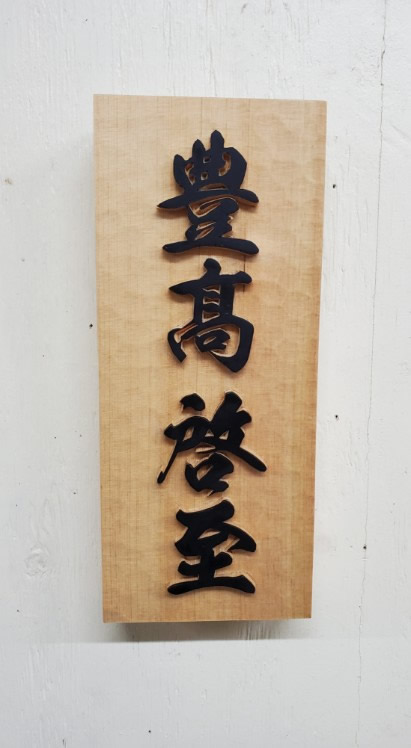 豊髙啓至